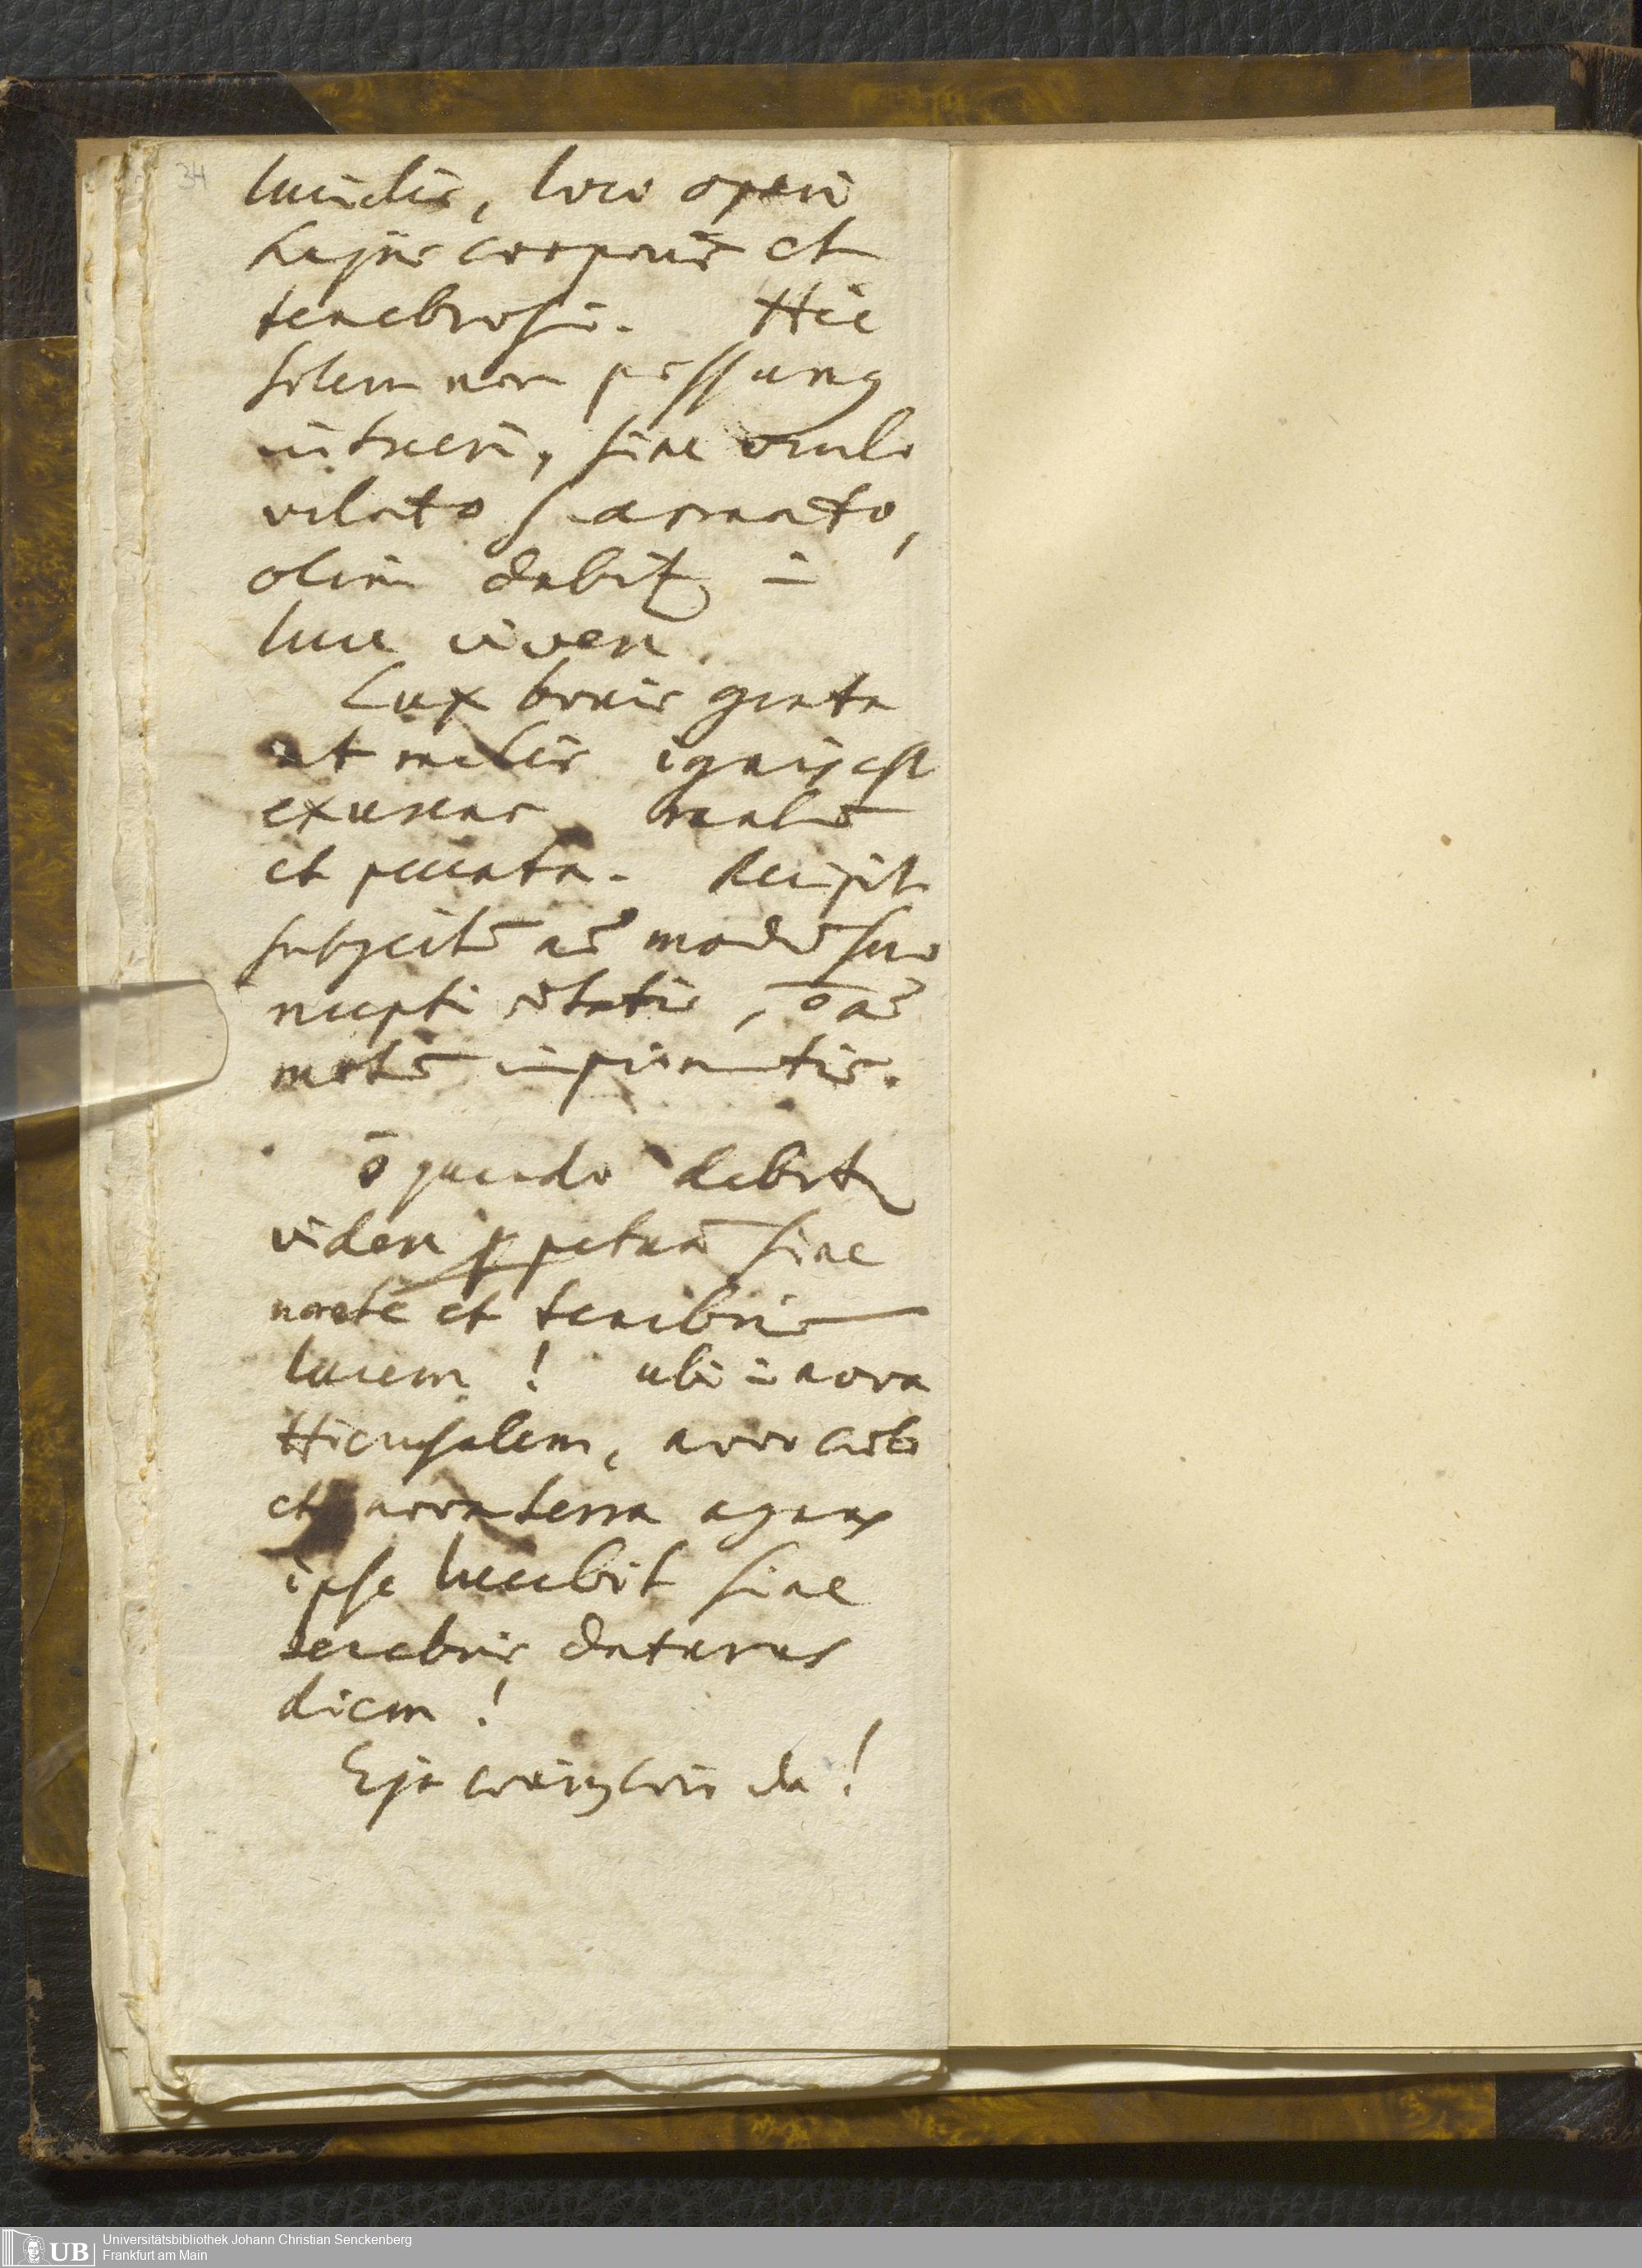 34
lucidis, loco operi
hujus corporis et
tenebrosi. Hic
solem non possumꝰ
intueri, sine oculo
velato armato,
olim dabitꝛ ī
luce vivere.
Lux bonis grata
et malis ignis est
exurens
et peccata. Recipit
subjectū ad modū suæ
recepti vitatis, nō ad
motū inspirantis.
ô quando dabitꝛ
videre ꝑpetuā sine
nocte et tenebris
lucem! ubi ī nova
Hierusalem, novo cœlo
et nova terra agnus
ipse lucebit sine
tenebris daturus
diem!
Eja wärn wir da!
UB Universitätsbibliothek Johann Christian Senckenberg
Frankfurt am Main